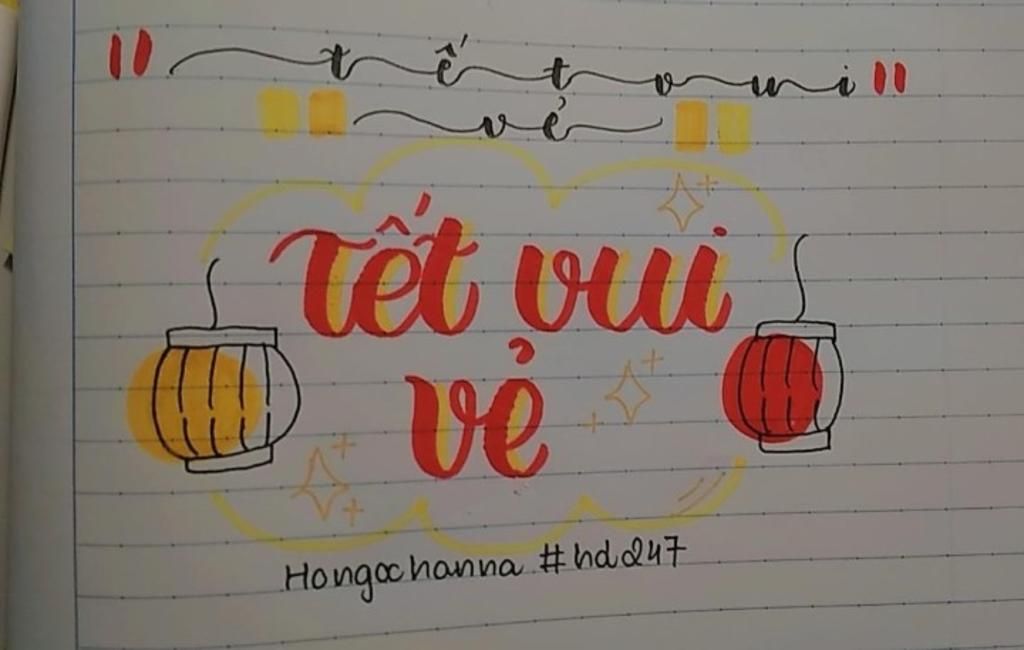 tết vui
vẻ
Tết vui
vẻ
Hongochanna #hd247